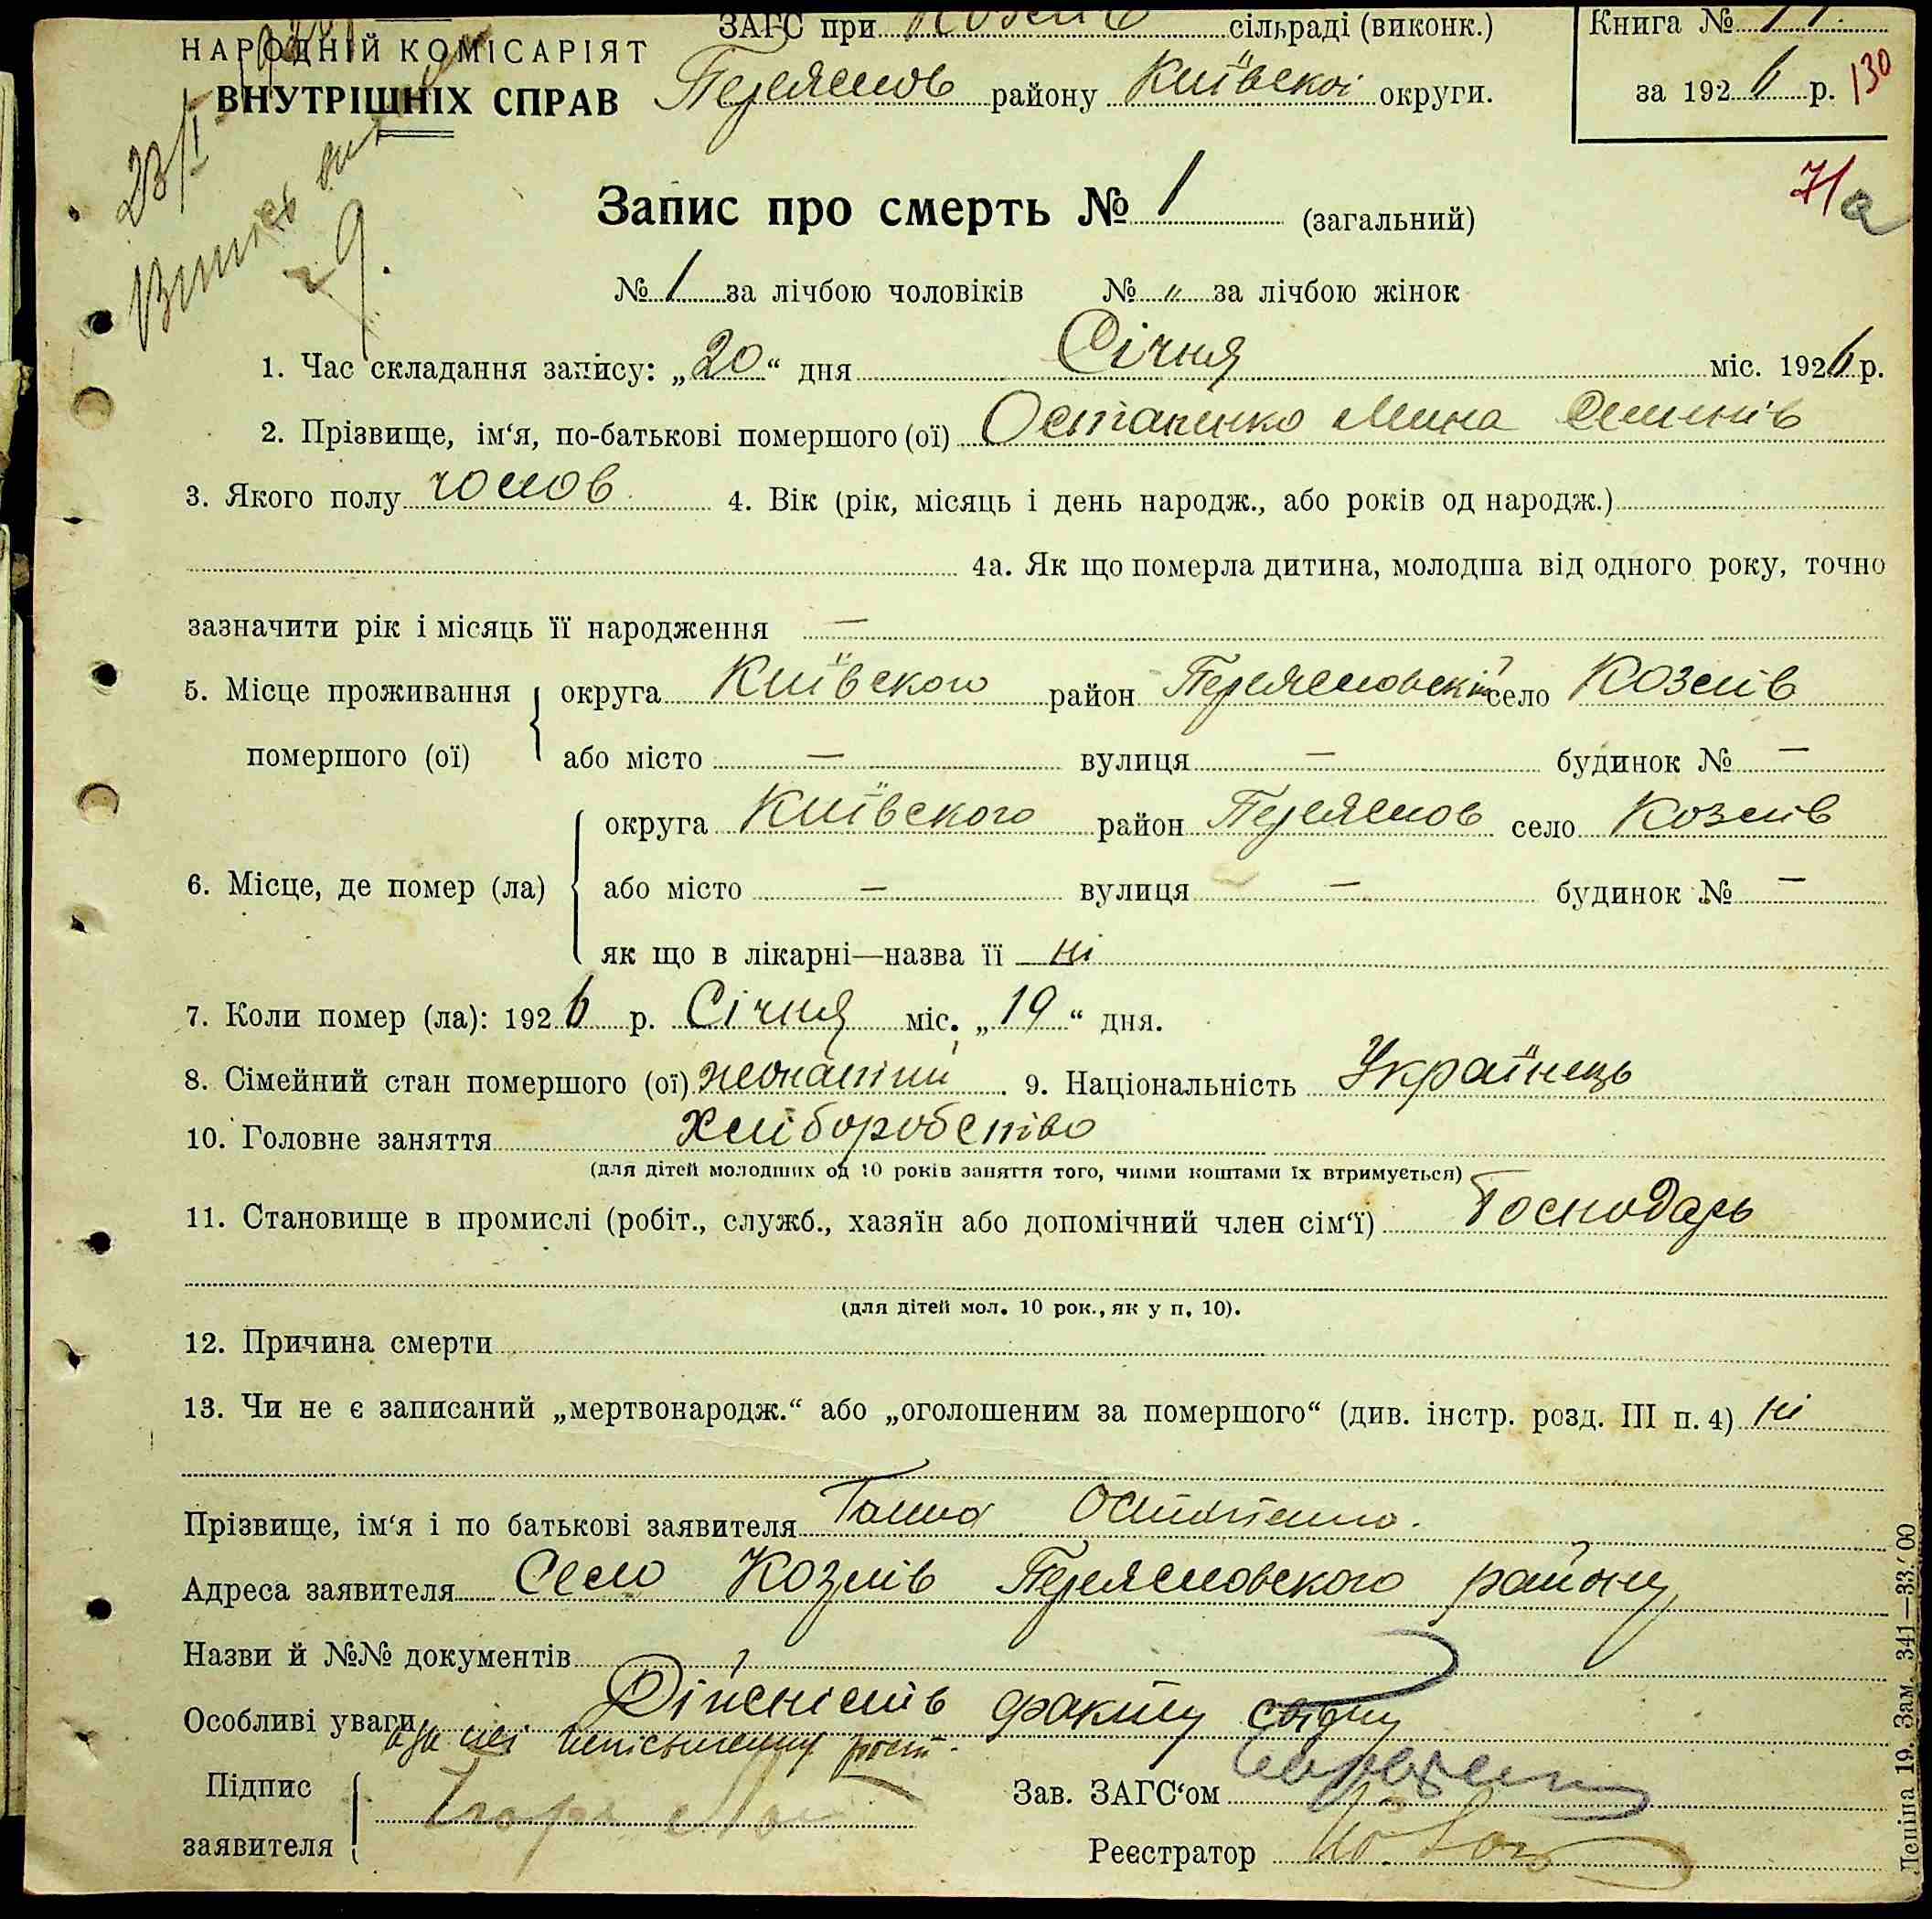 ЗАГС при Козлів сільраді (виконк.)
Книга №
НАРОДНІЙ КОМІСАРІЯТ
ВНУТРІШНІХ СПРАВ
Переяслов району Київскоі округи.
за 1926 р.
130
23/I
71а
Запис про смерть № 1 (загальний)
№ 1 за лічбою чоловіків № „ за лічбою жінок
1. Час складання запису: „20“ дня Січня міс. 1926 р.
2. Прізвище, ім‘я, по-батькові помершого (ої) Остапенко Мина
3. Якого полу чолов. 4. Вік (рік, місяць і день народж., або років од народж.)
4а. Як що померла дитина, молодша від одного року, точно
зазначити рік і місяць її народження —
5. Місце проживання помершого (ої) округа Київского район Переясловский село Козлів
або місто — вулиця — будинок № —
6. Місце, де помер (ла) округа Київского район Переяслов село Козлів
або місто — вулиця — будинок № —
як що в лікарні—назва її ні
7. Коли помер (ла): 1926 р. Січня міс. „19“ дня.
8. Сімейний стан помершого (ої) жонатий. 9. Національність Українець
10. Головне заняття Хліборобство
(для дітей молодших од 10 років заняття того, чиїми коштами їх втримується)
11. Становище в промислі (робіт., служб., хазяїн або допомічний член сім‘ї) Господарь
(для дітей мол. 10 рок., як у п. 10).
12. Причина смерти
13. Чи не є записаний „мертвонародж.“ або „оголошеним за помершого“ (див. інстр. розд. III п. 4) ні
Прізвище, ім‘я і по батькові заявителя Ганна Остапенко.
Адреса заявителя Село Козлів Переясловского району
Назви й №№ документів
Особливі уваги Дійсність факту свідчу
Підпис заявителя
Зав. ЗАГС‘ом
Реєстратор
Леніна 19. Зам. 341—33.'00